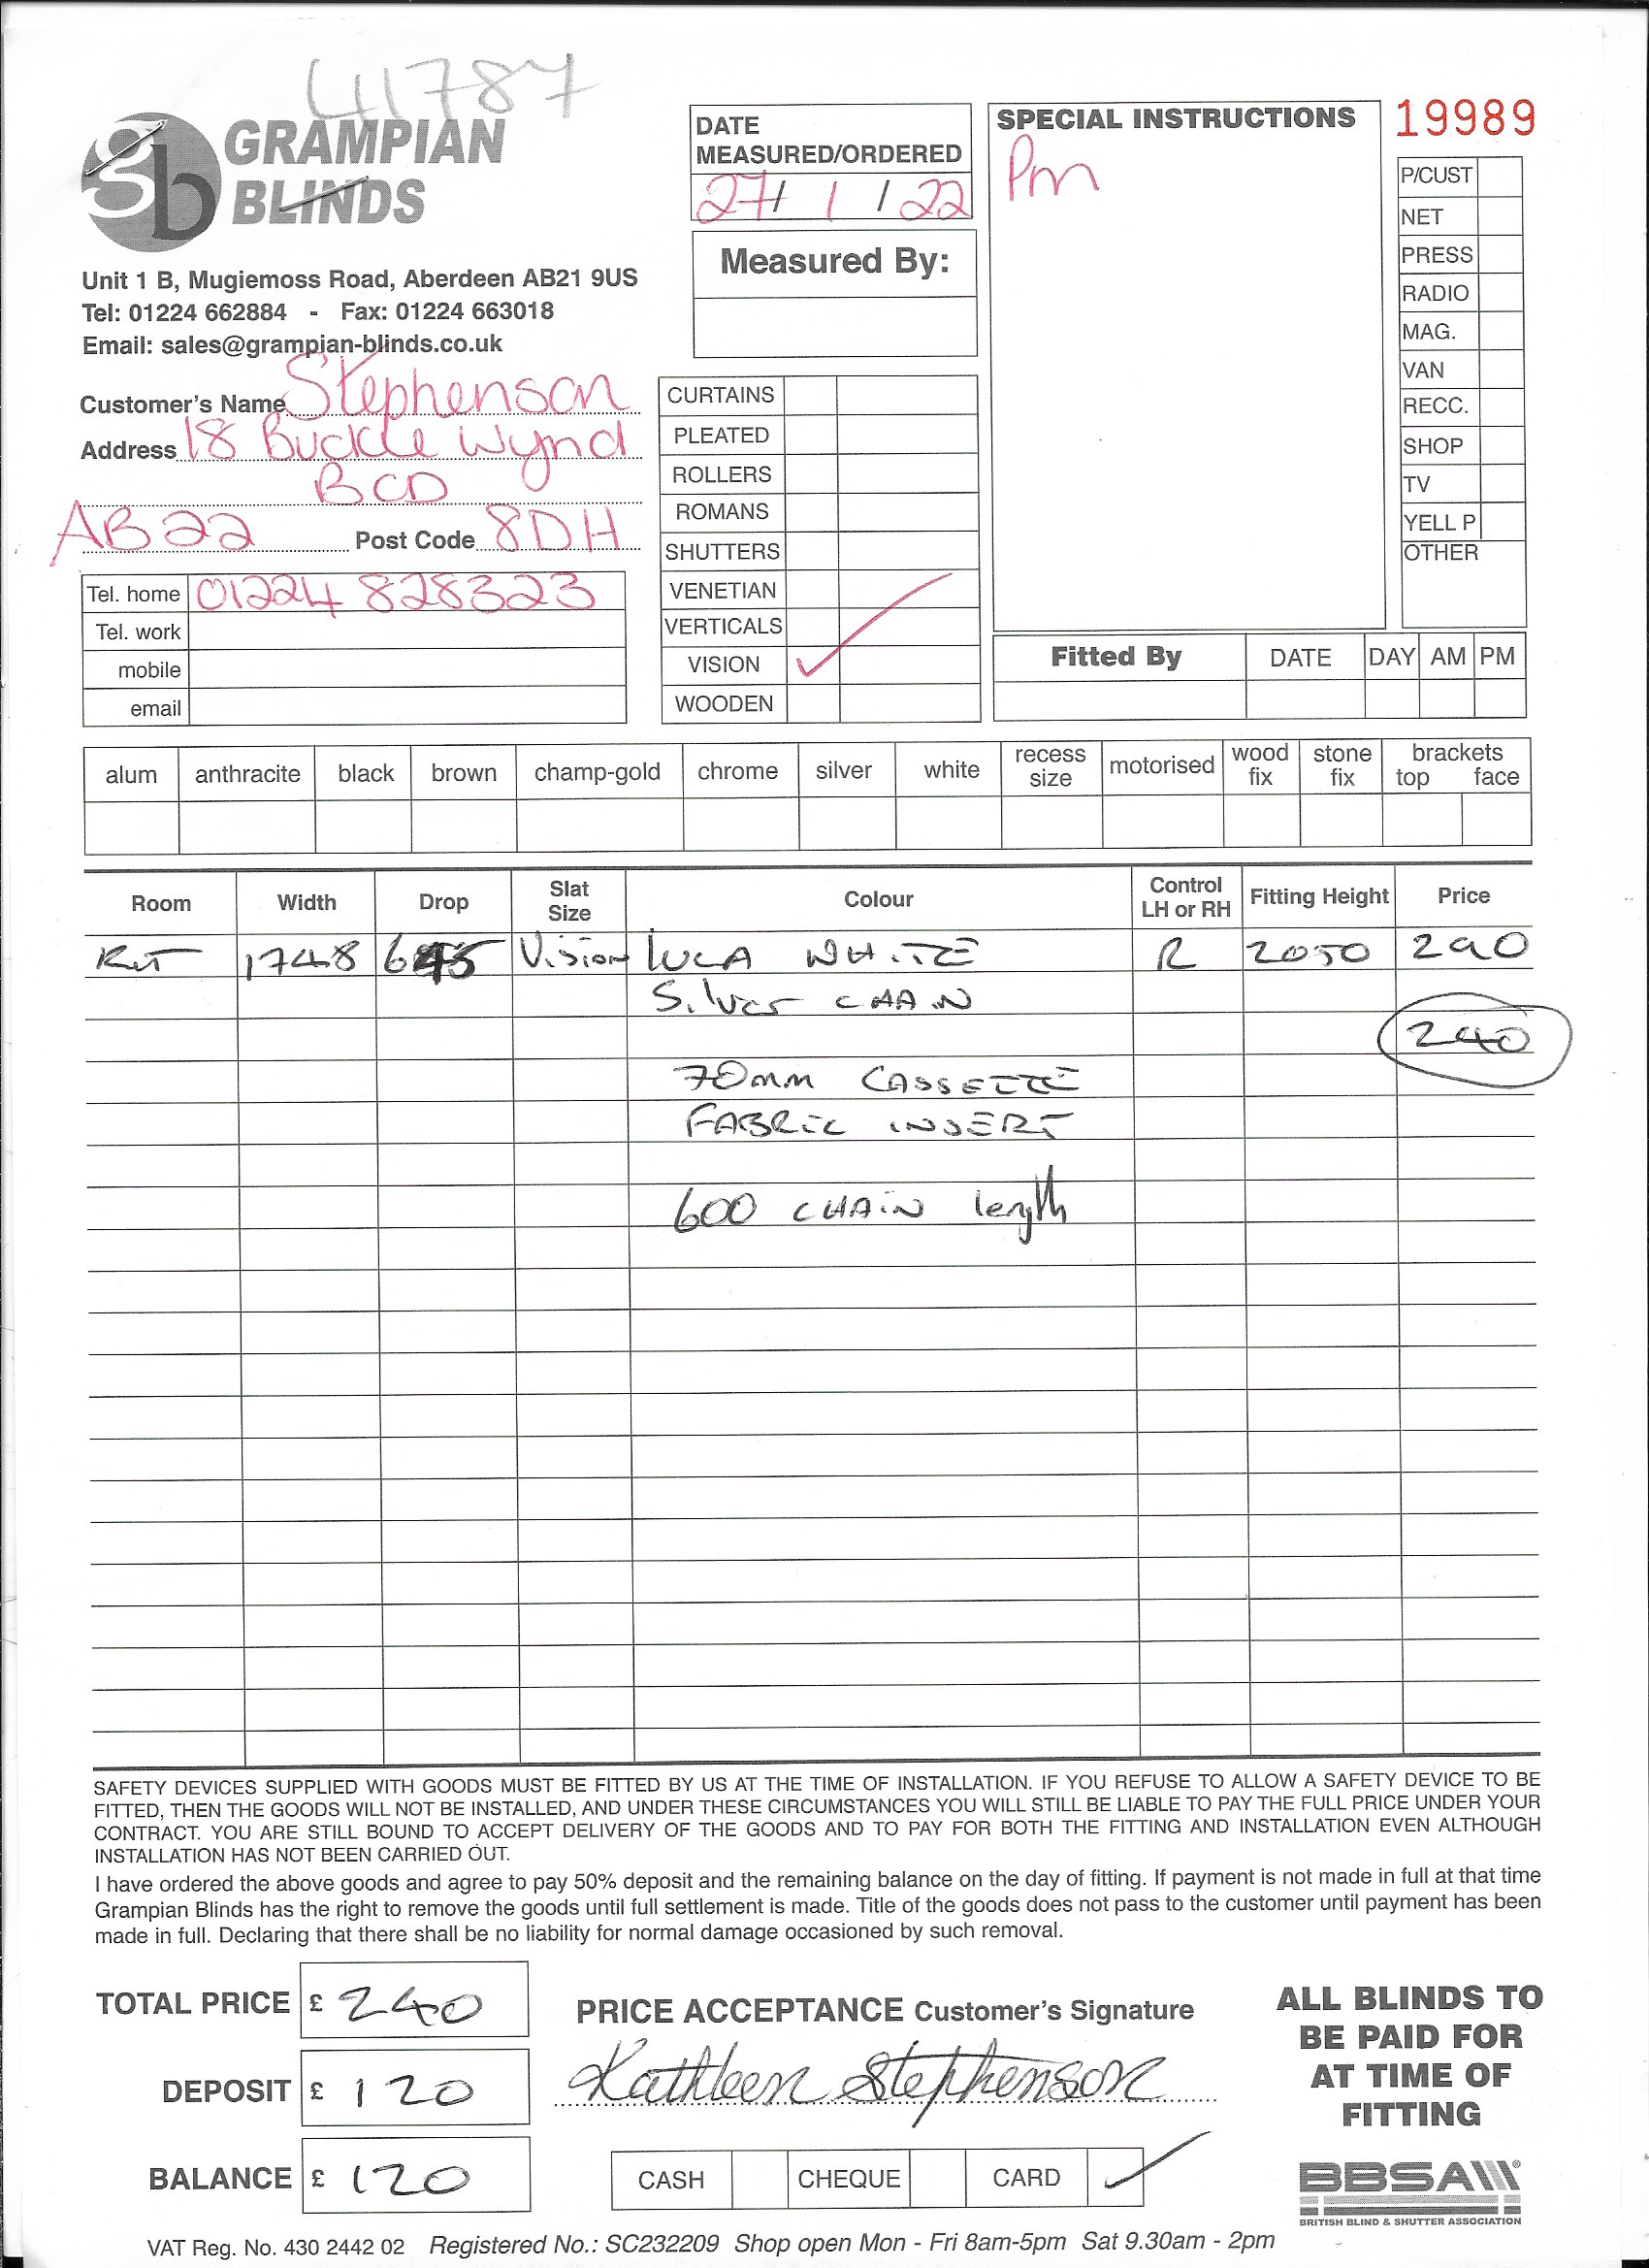 41787
GRAMPIAN
BLINDS
Unit 1 B, Mugiemoss Road, Aberdeen AB21 9US
Tel: 01224 662884 - Fax: 01224 663018
Email: sales@grampian-blinds.co.uk
Customer's Name Stephenson
Address 18 Buckle Wynd
BOD
AB22 Post Code 8DH
Tel. home 01224 828323
Tel. work
mobile
email
DATE
MEASURED/ORDERED
27/ 1 / 22
Measured By:
CURTAINS
PLEATED
ROLLERS
ROMANS
SHUTTERS
VENETIAN
VERTICALS
VISION ✓
WOODEN
SPECIAL INSTRUCTIONS
Pm
19989
P/CUST
NET
PRESS
RADIO
MAG.
VAN
RECC.
SHOP
TV
YELL P
OTHER
Fitted By DATE DAY AM PM
alum anthracite black brown champ-gold chrome silver white recess size motorised wood fix stone fix brackets top face
Room Width Drop Slat Size Colour Control LH or RH Fitting Height Price
KIT 1748 Vision LUCA WHITE R 2050 290
Silver CHAIN
240
70mm CASSETTE
FABRIC INSERT
600 CHAIN length
SAFETY DEVICES SUPPLIED WITH GOODS MUST BE FITTED BY US AT THE TIME OF INSTALLATION. IF YOU REFUSE TO ALLOW A SAFETY DEVICE TO BE
FITTED, THEN THE GOODS WILL NOT BE INSTALLED, AND UNDER THESE CIRCUMSTANCES YOU WILL STILL BE LIABLE TO PAY THE FULL PRICE UNDER YOUR
CONTRACT. YOU ARE STILL BOUND TO ACCEPT DELIVERY OF THE GOODS AND TO PAY FOR BOTH THE FITTING AND INSTALLATION EVEN ALTHOUGH
INSTALLATION HAS NOT BEEN CARRIED OUT.
I have ordered the above goods and agree to pay 50% deposit and the remaining balance on the day of fitting. If payment is not made in full at that time
Grampian Blinds has the right to remove the goods until full settlement is made. Title of the goods does not pass to the customer until payment has been
made in full. Declaring that there shall be no liability for normal damage occasioned by such removal.
TOTAL PRICE £ 240
DEPOSIT £ 120
BALANCE £ 120
PRICE ACCEPTANCE Customer's Signature
Kathleen Stephenson
CASH CHEQUE CARD ✓
ALL BLINDS TO
BE PAID FOR
AT TIME OF
FITTING
BBSA
BRITISH BLIND & SHUTTER ASSOCIATION
VAT Reg. No. 430 2442 02 Registered No.: SC232209 Shop open Mon - Fri 8am-5pm Sat 9.30am - 2pm